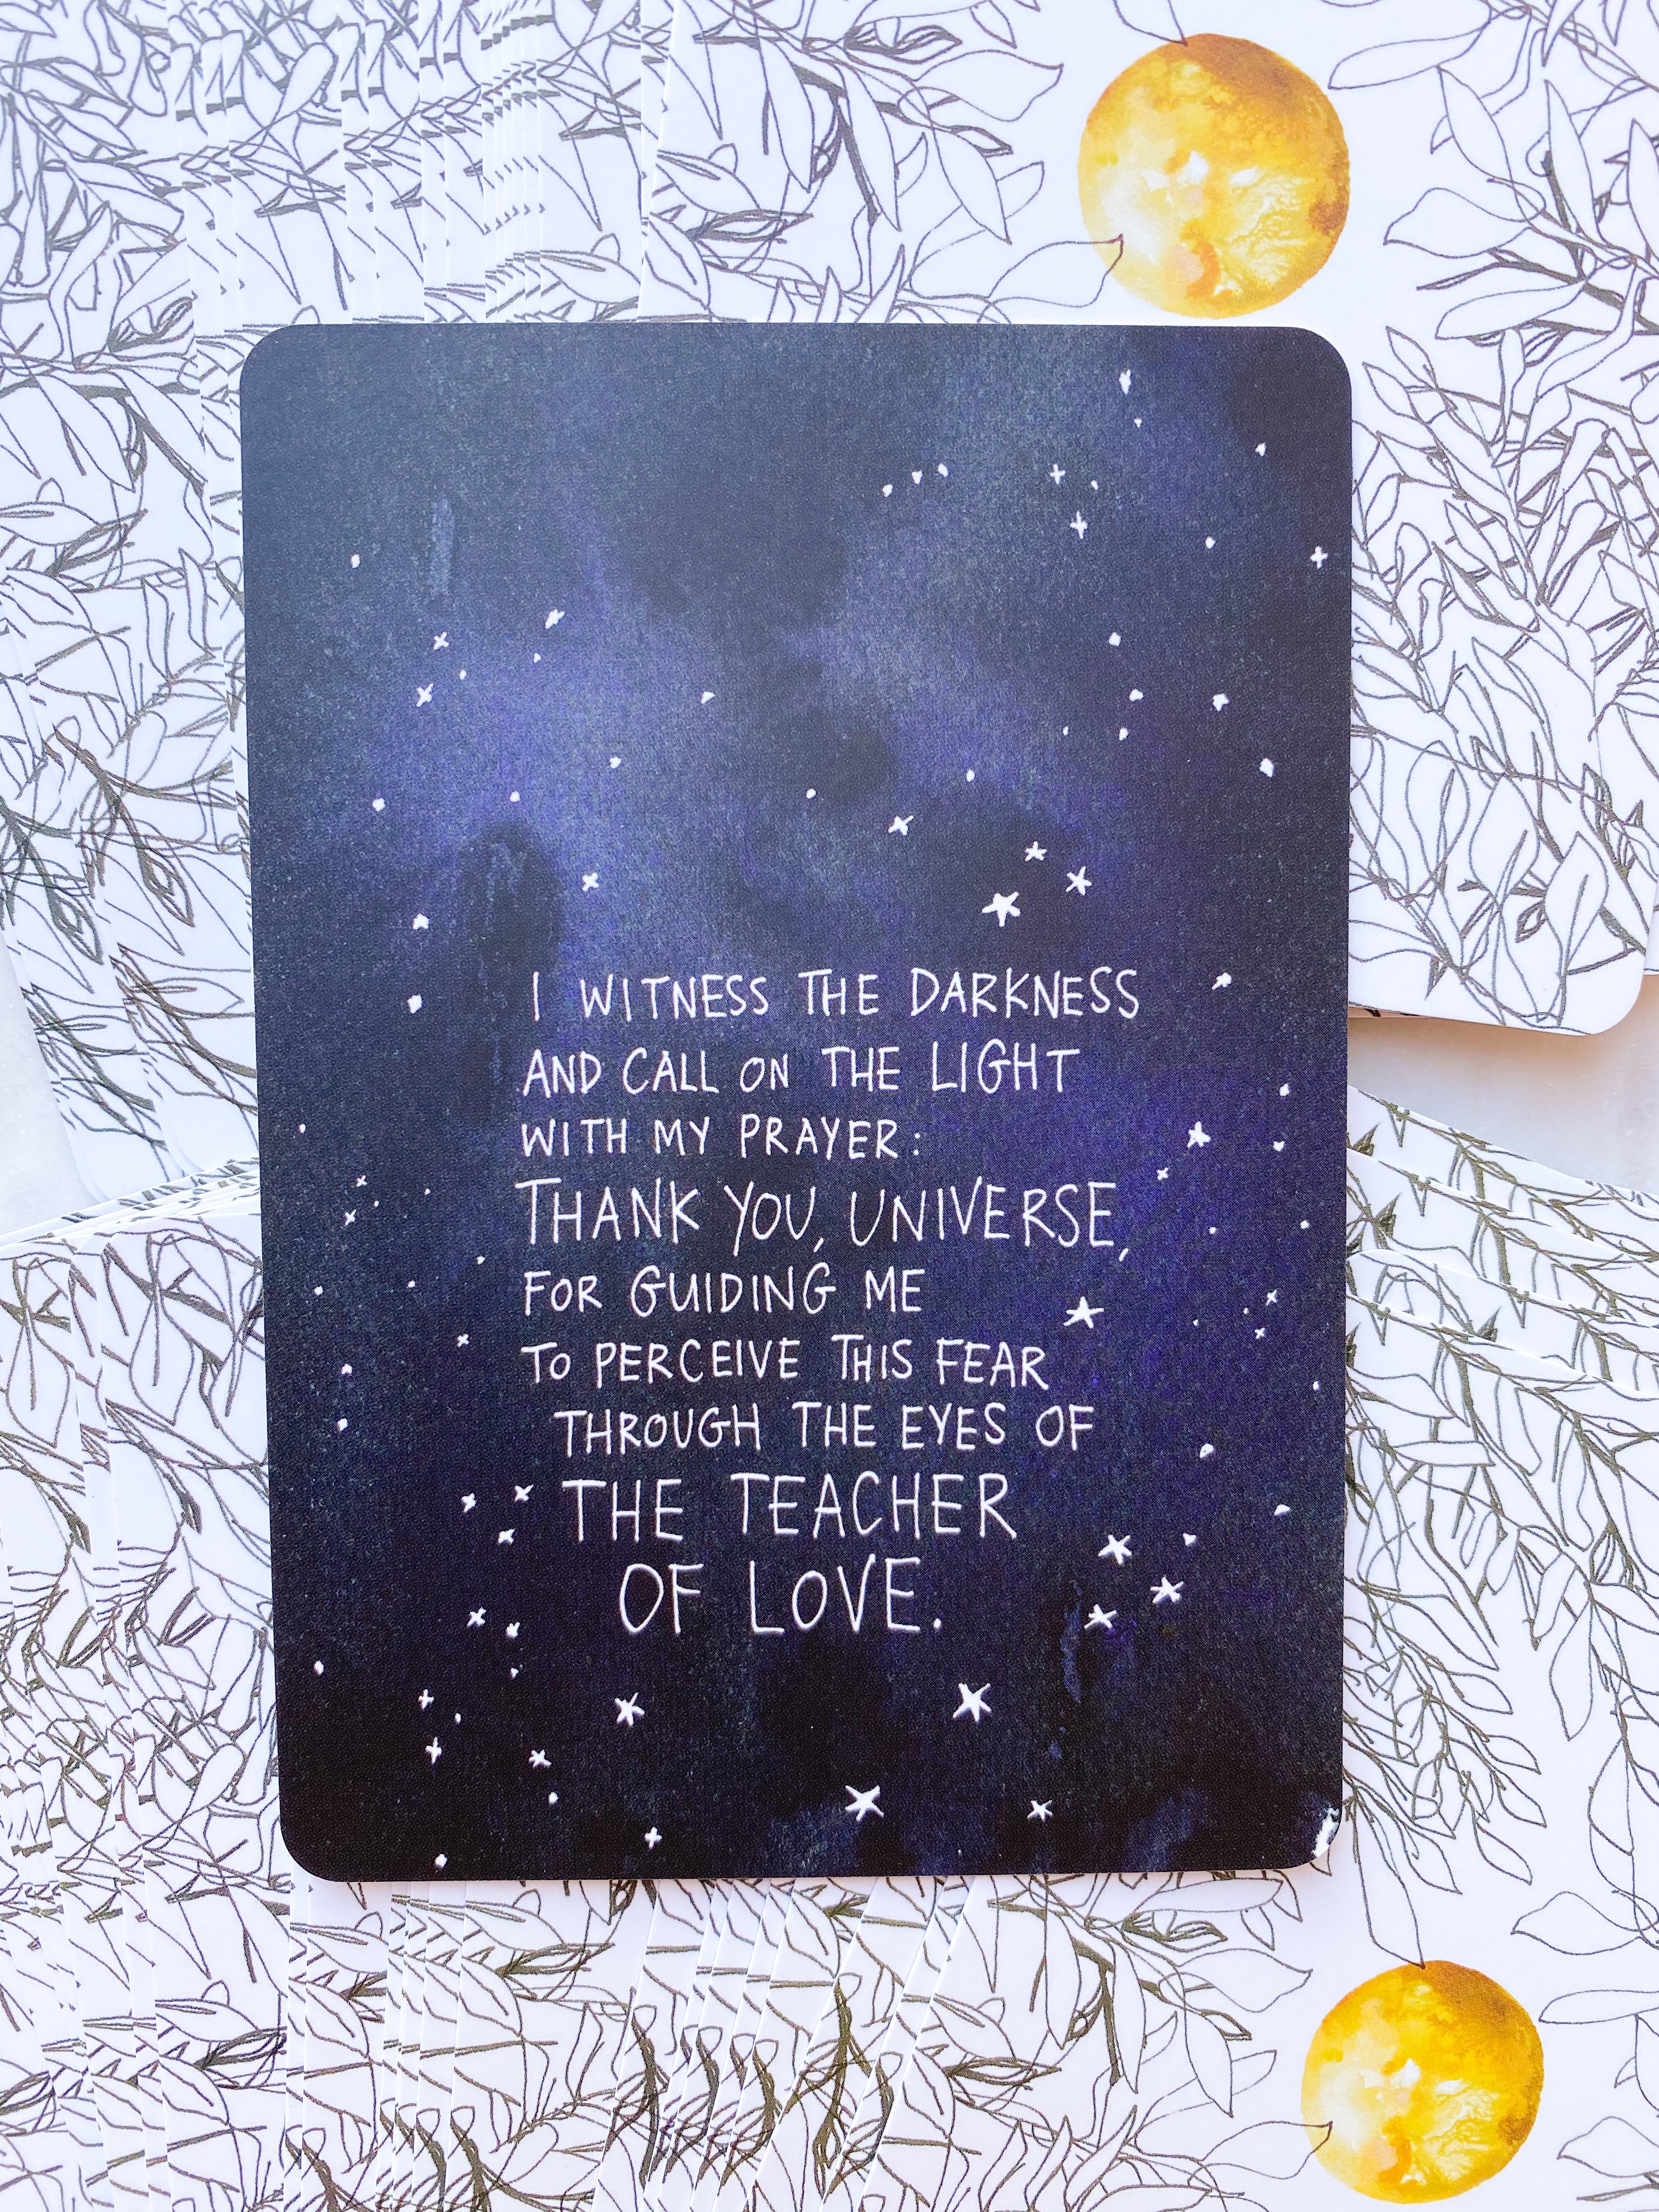 I WITNESS THE DARKNESS
AND CALL ON THE LIGHT
WITH MY PRAYER:
THANK YOU, UNIVERSE,
FOR GUIDING ME
TO PERCEIVE THIS FEAR
THROUGH THE EYES OF
THE TEACHER
OF LOVE.